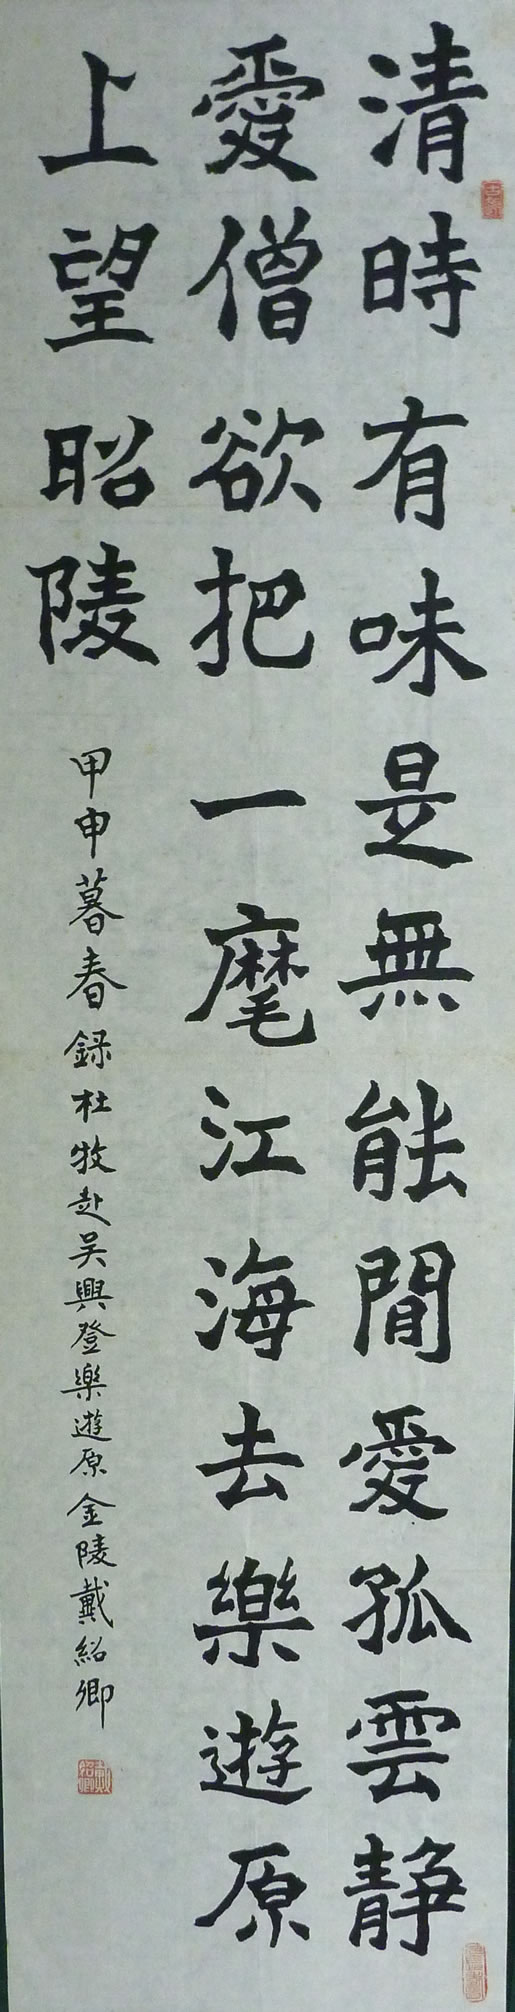 清時有味是無能閒愛孤雲静
愛僧欲把一麾江海去樂遊原
上望昭陵
甲申暮春録杜牧赴吴興登樂遊原金陵戴紹卿